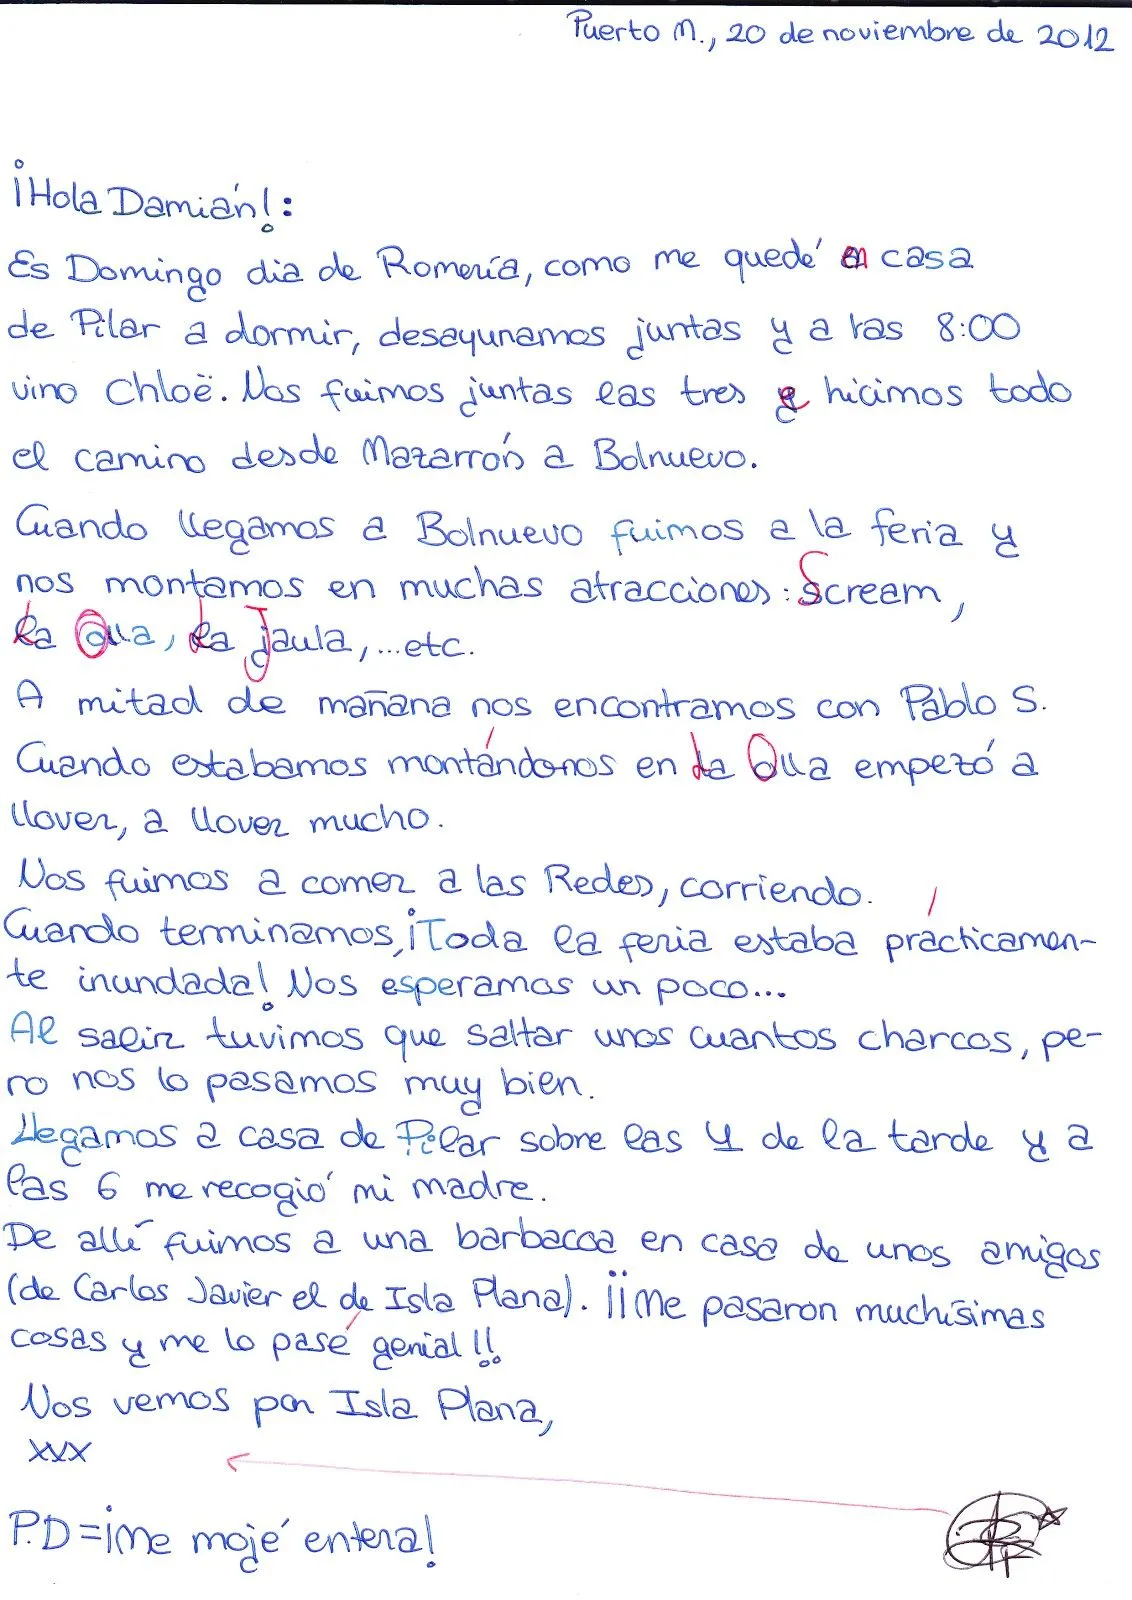 Puerto M., 20 de noviembre de 2012
¡Hola Damián!:
Es Domingo dia de Romería, como me quedé en casa
de Pilar a dormir, desayunamos juntas y a las 8:00
vino Chloë. Nos fuimos juntas las tres e hicimos todo
el camino desde Mazarrón a Bolnuevo.
Cuando llegamos a Bolnuevo fuimos a la feria y
nos montamos en muchas atracciones: Scream,
La Olla, La Jaula, ...etc.
A mitad de mañana nos encontramos con Pablo S.
Cuando estabamos montándonos en La Olla empezó a
llover, a llover mucho.
Nos fuimos a comer a las Redes, corriendo.
Cuando terminamos, ¡Toda la feria estaba prácticamen-
te inundada! Nos esperamos un poco...
Al salir tuvimos que saltar unos cuantos charcos, pe-
ro nos lo pasamos muy bien.
Llegamos a casa de Pilar sobre las 4 de la tarde y a
las 6 me recogió mi madre.
De allí fuimos a una barbacoa en casa de unos amigos
(de Carlos Javier el de Isla Plana). ¡¡Me pasaron muchísimas
cosas y me lo pasé genial!!
Nos vemos por Isla Plana,
xxx
P.D=¡Me mojé entera!